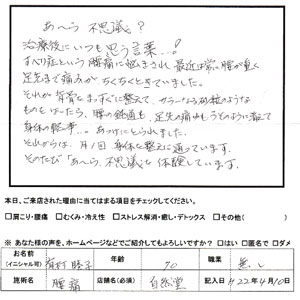 あ〜ら 不思議?
治療後にいつも思う言葉…!
すべり症という腰痛に悩まされ 最近は常に腰が重く
足先まで痛みがちくちくときていました。
それが背骨をまっすぐに整えて、カラーなる砂粒のような
ものをはったら、腰の鈍痛も、足先の痛みもうそのように消えて
身体の軽い事…。あっけにとられました。
それからは、月1回 身体を整えに通っています。
そのたび「あ〜ら、不思議を体験しています。
本日、ご来店された理由に当てはまる項目をチェックしてください。
□肩こり・腰痛 □むくみ・冷え性 □ストレス解消・癒し・デトックス □その他( )
※ あなた様の声を、ホームページなどでご紹介してもよろしいですか? □はい □匿名で □ダメ
お名前 (イニシャル可) 年齢 70 職業 無し
施術名 腰痛 店舗名(必須) 自然堂 記入日 H22年4月10日